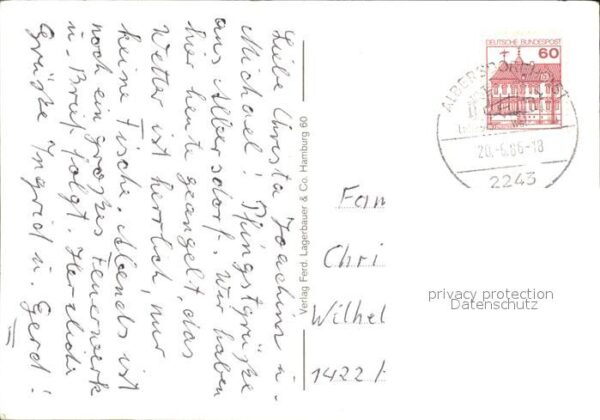 Liebe Christa, Joachim u.
Michael! Pfingstgrüße
aus Albersdorf. Wir haben
hier heute geangelt, das
Wetter ist herrlich, nur
keine Fische. Abends ist
noch ein großes Feuerwerk
u. Brief folgt. Herzliche
Grüße Ingrid u. Gerd!
Verlag Ferd. Lagerbauer & Co. Hamburg 60
DEUTSCHE BUNDESPOST
60
ALBERSDORF, HOLST
20.-5.86-18
2243
Fam
Chri
Wilhel
1422
privacy protection
Datenschutz